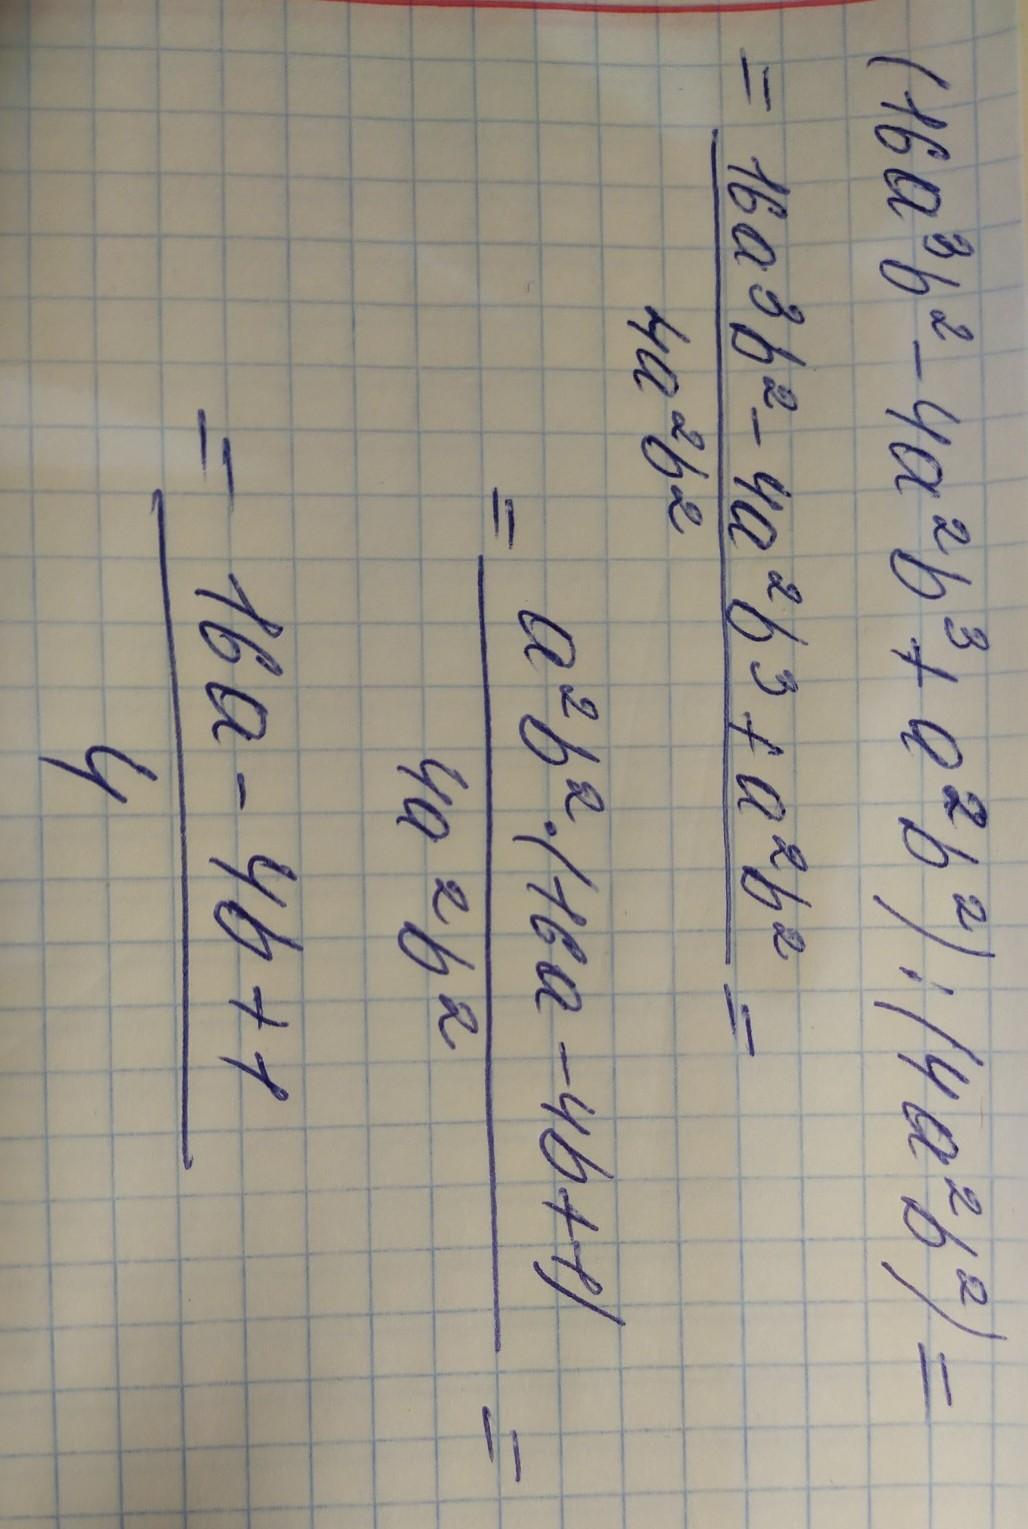 (16a³b² - 4a²b³ + a²b²) : (4a²b²) =
= 16a³b² - 4a²b³ + a²b² =
4a²b²
= a²b² · (16a - 4b + 1) =
4a²b²
= 16a - 4b + 1
4